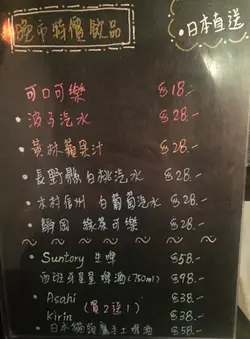 晚市特價飲品
•日本直送
可口可樂 $18.-
• 波子汽水 $28.-
• 青林蘋果汁 $28.-
• 長野縣白桃汽水 $28.-
• 木村信州 白葡萄汽水 $28.-
• 靜岡 綠茶可樂 $28.-
• Suntory 生啤 $58.-
• 西班牙星星啤酒(750ml) $98.-
• Asahi $38.-
(買2送1)
• Kirin $38.-
• 日本貓頭鷹手工啤酒 $58.-